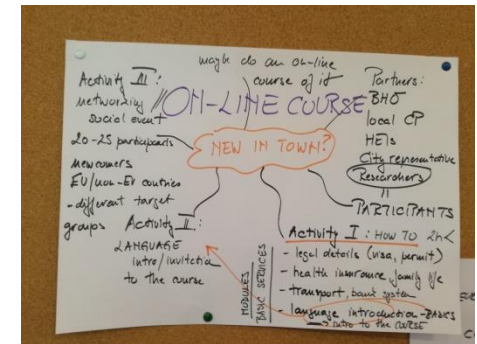 maybe do an on-line
course of it
ON-LINE COURSE
NEW IN TOWN?
Activity III:
networking /
social event
20-25 participants
newcomers
EU/non-EU countries
- different target
groups
Activity II:
LANGUAGE
intro/invitation
to the course
Partners:
local CP
HEIs
City representative
Researchers
PARTICIPANTS
Activity I: HOW TO 2h<
- legal details (visa, permit)
- health insurance, family life
- transport, bank system
- language introduction - BASICS
intro to the COURSE
MODULES
BASIC SERVICES